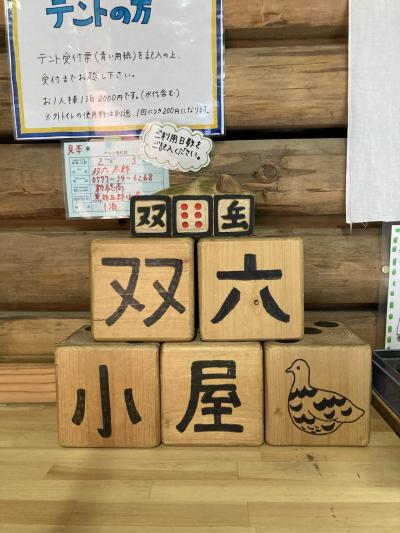 テントの方
テント受付票(青い用紙)を記入の上、
受付までお越し下さい。
お1人様1泊2000円です。(水代含む)
※外トイレの使用料は別途、1回につき200円になります。
ご利用日数も
ご記入ください。
見本
テント受付票
双六太郎
0577-34-6268
1泊
双 岳
双六
小屋